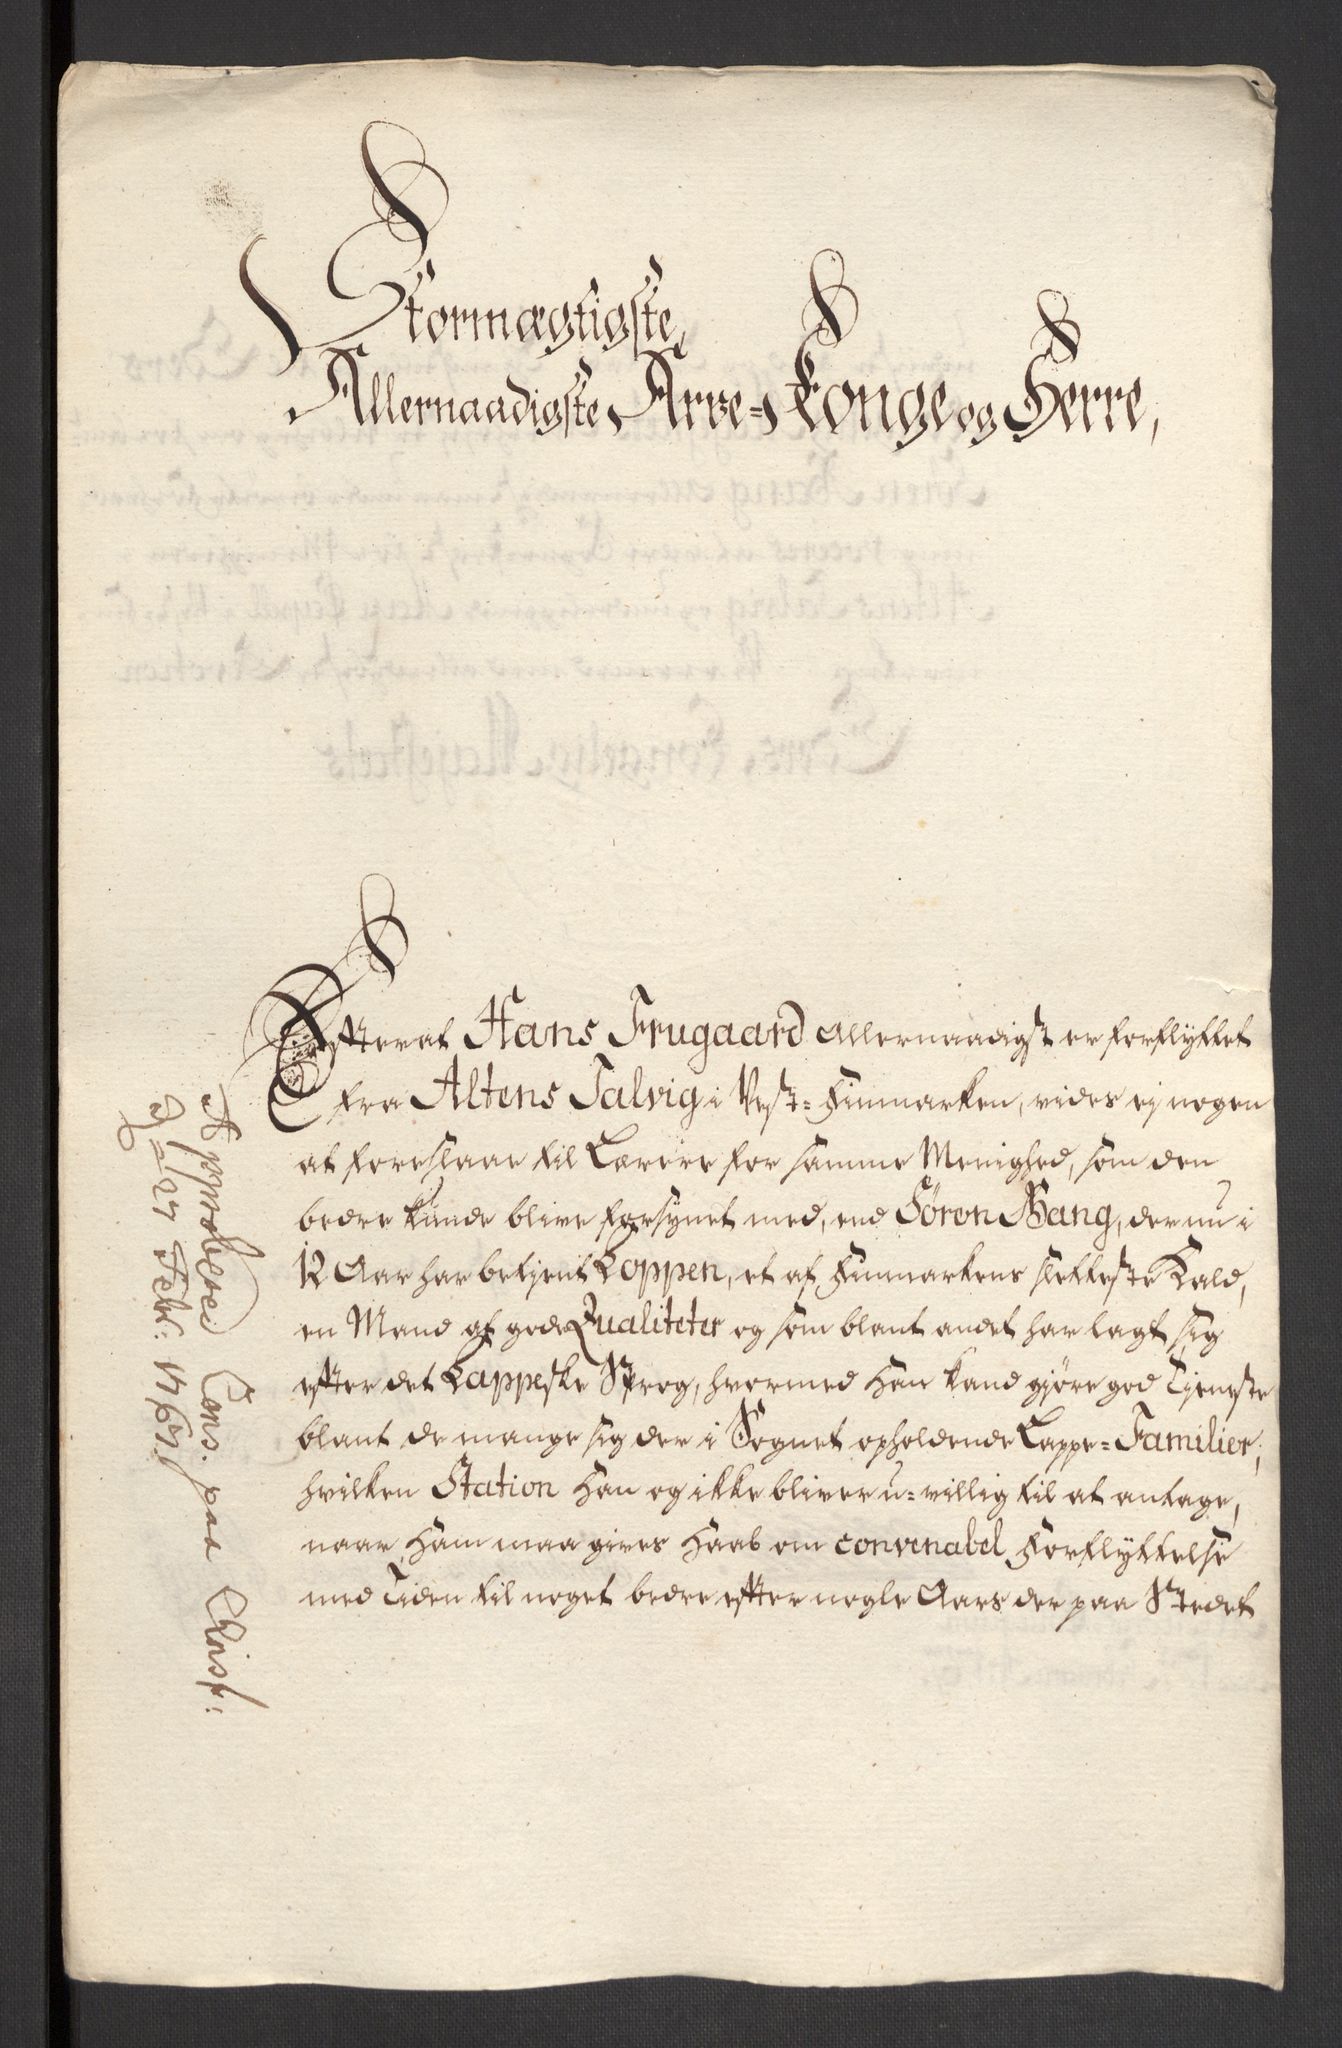 Stormægtigste,
Allernaadigste Arve-Konge og Herre,
Efter at Hans Frugaard allernaadigst er forflyttet
fra Altens Talvig i Vest-Finmarken, vides ej nogen
at foreslaae til Lærere for samme Menighed, som den
bedre kunde blive forsynet med, end Sören Bang, der nu i
12 Aar har betjent Loppen, et af Finmarkens sletteste Kald,
en Mand af gode Qualiteter og som blant andet har lagt sig
efter det Lappeske Sprog, hvormed han kand gjøre god Tjeneste
blant de mange sig der i Sognet opholdende Lappe-Familier;
hvilken Station han og ikke bliver u-villig til at antage,
naar ham maa gives Haab om convenabel Forflyttelse
med Tiden til noget bedre efter nogle Aars der paa Stedet
Approberet Cons. paa Christ:
d 27 Febr: 1767.